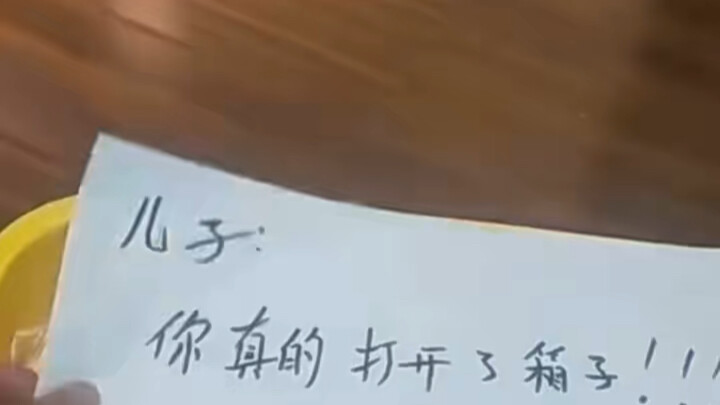 儿子:
你真的打开了箱子!!!